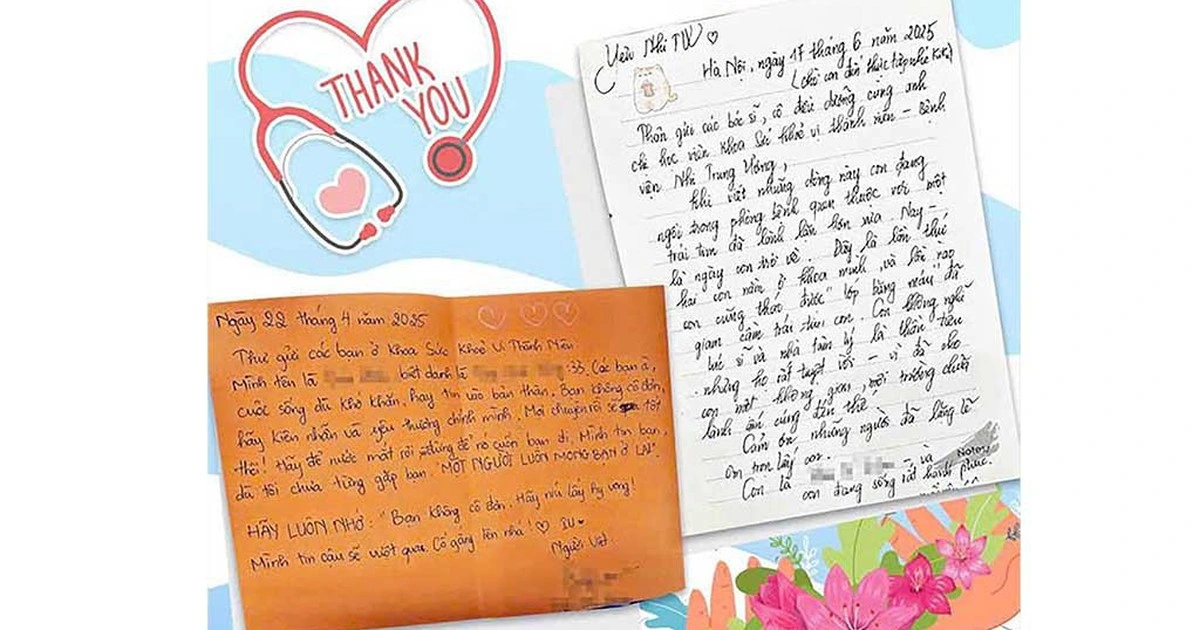 THANK
YOU
Yêu Nhi TW ♡
Hà Nội, ngày 17 tháng 6 năm 2025
(chờ con đến thức tập nhé
Thân gửi các bác sĩ, cô điều dưỡng cùng anh
chị học viên Khoa Sức khoẻ vị thành niên – Bệnh
viện Nhi Trung Ương,
khi viết những dòng này con đang
ngồi trong phòng bệnh quen thuộc với một
trái tim đã lành lặn hơn xưa. Nay –
là ngày con trở về. Đây là lần thứ
hai con nằm ở khoa mình, và lần nào
con cũng thoát được "lớp băng máu" đã
giam cầm trái tim con. Con không nghĩ
bác sĩ và nhà tâm lý là thần tiên
nhưng họ rất tuyệt vời – vì đã cho
con một không gian, môi trường chữa
lành ấm cúng đến thế.
Cảm ơn những người đã lặng lẽ
ôm trọn lấy con.
Con là – và
con đang sống rất hạnh phúc.
Notors
Ngày 22 tháng 4 năm 2025
Thư gửi các bạn ở Khoa Sức Khoẻ Vị Thành Niên
Mình tên là , biệt danh là :33. Các bạn à,
cuộc sống dù khó khăn, hãy tin vào bản thân. Bạn không cô đơn,
hãy kiên nhẫn và yêu thương chính mình! Mọi chuyện rồi sẽ tốt
thôi! Hãy để nước mắt rơi, đừng để nó cuốn bạn đi. Mình tin bạn,
dù tôi chưa từng gặp bạn "MỘT NGƯỜI LUÔN MONG BẠN Ở LẠI".
HÃY LUÔN NHỚ: "Bạn không cô đơn. Hãy níu lấy hy vọng!
Mình tin cậu sẽ vượt qua. Cố gắng lên nhá! ♡ IU ♥
Người viết